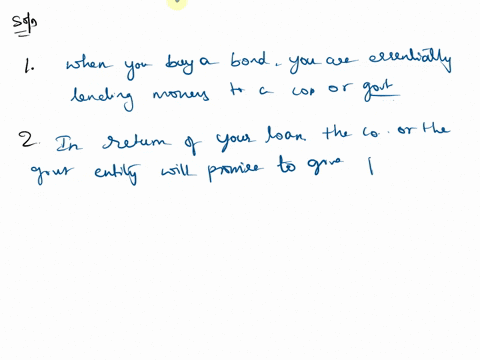 Soln
1. When you buy a bond, you are essentially
lending money to a co or govt
2. In return of your loan the co. or the
govt entity will promise to give